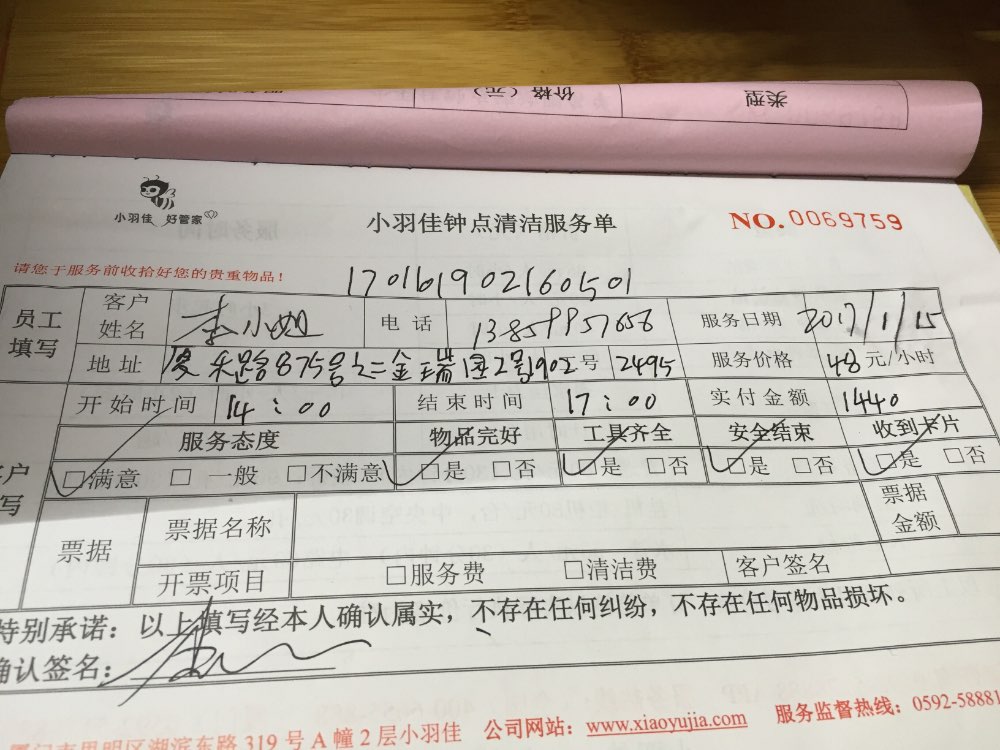 类型 价格（元）
小羽佳 好管家
小羽佳钟点清洁服务单
NO.0069759
请您于服务前收拾好您的贵重物品！
170161902160501
员工填写 客户姓名 李小姐 电话 13859957658 服务日期 2017/1/15
地址 厦禾路875号之二金瑞园2号1902号 2495 服务价格 48元/小时
开始时间 14:00 结束时间 17:00 实付金额 1440
服务态度 物品完好 工具齐全 安全结束 收到卡片
□满意 □一般 □不满意 □是 □否 □是 □否 □是 □否 □是 □否
票据 票据名称 票据金额
开票项目 □服务费 □清洁费 客户签名
特别承诺：以上填写经本人确认属实，不存在任何纠纷，不存在任何物品损坏。
确认签名：
厦门市思明区湖滨东路319号A幢2层小羽佳 公司网站：www.xiaoyujia.com 服务监督热线：0592-58881